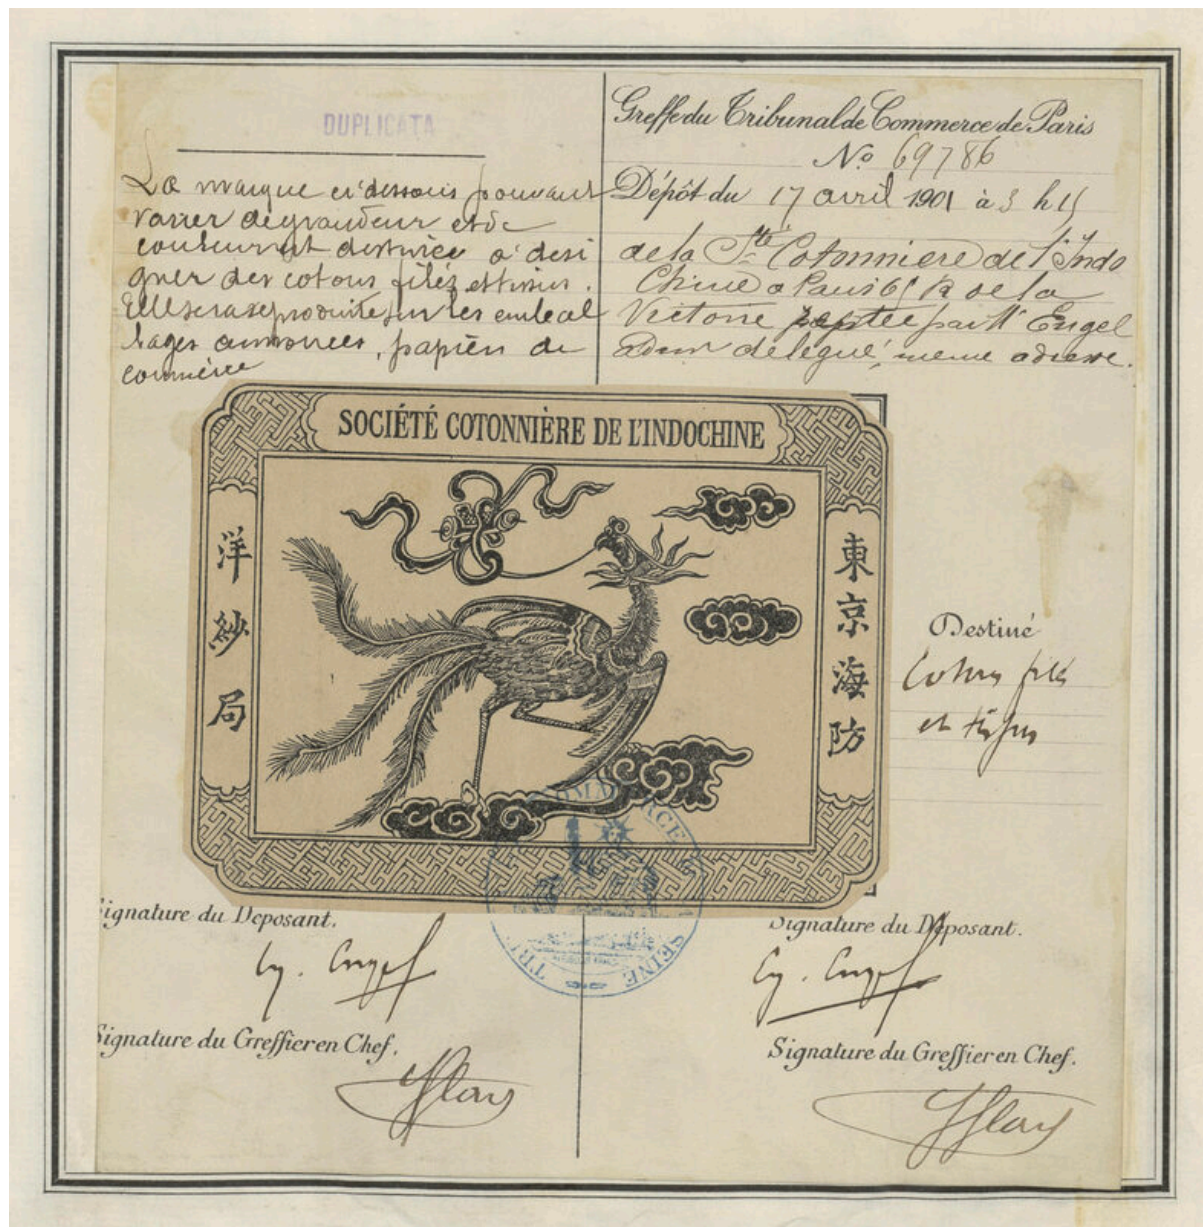 DUPLICATA
La marque ci dessous pouvant
varier de grandeur et de
couleur est destinée a desi
gner des cotons filés et tissus.
Elle sera reproduite sur les embal
lages annonces, papiers de
commerce
Greffe du Tribunal de Commerce de Paris
No 69786
Dépôt du 17 avril 1901 à 3 h 15
de la Sté Cotonniere de l'Indo
Chine a Paris 65 R de la
Victoire reptée par Mr Engel
Adm délégué, meme adresse.
SOCIÉTÉ COTONNIÈRE DE L'INDOCHINE
洋紗局
東京海防
Destiné
Cotons filés
et tissus
COMMERCE
SEINE
TRI
ignature du Déposant.
Signature du Déposant.
Eg. Engel
Eg. Engel
Signature du Greffier en Chef.
Signature du Greffier en Chef.